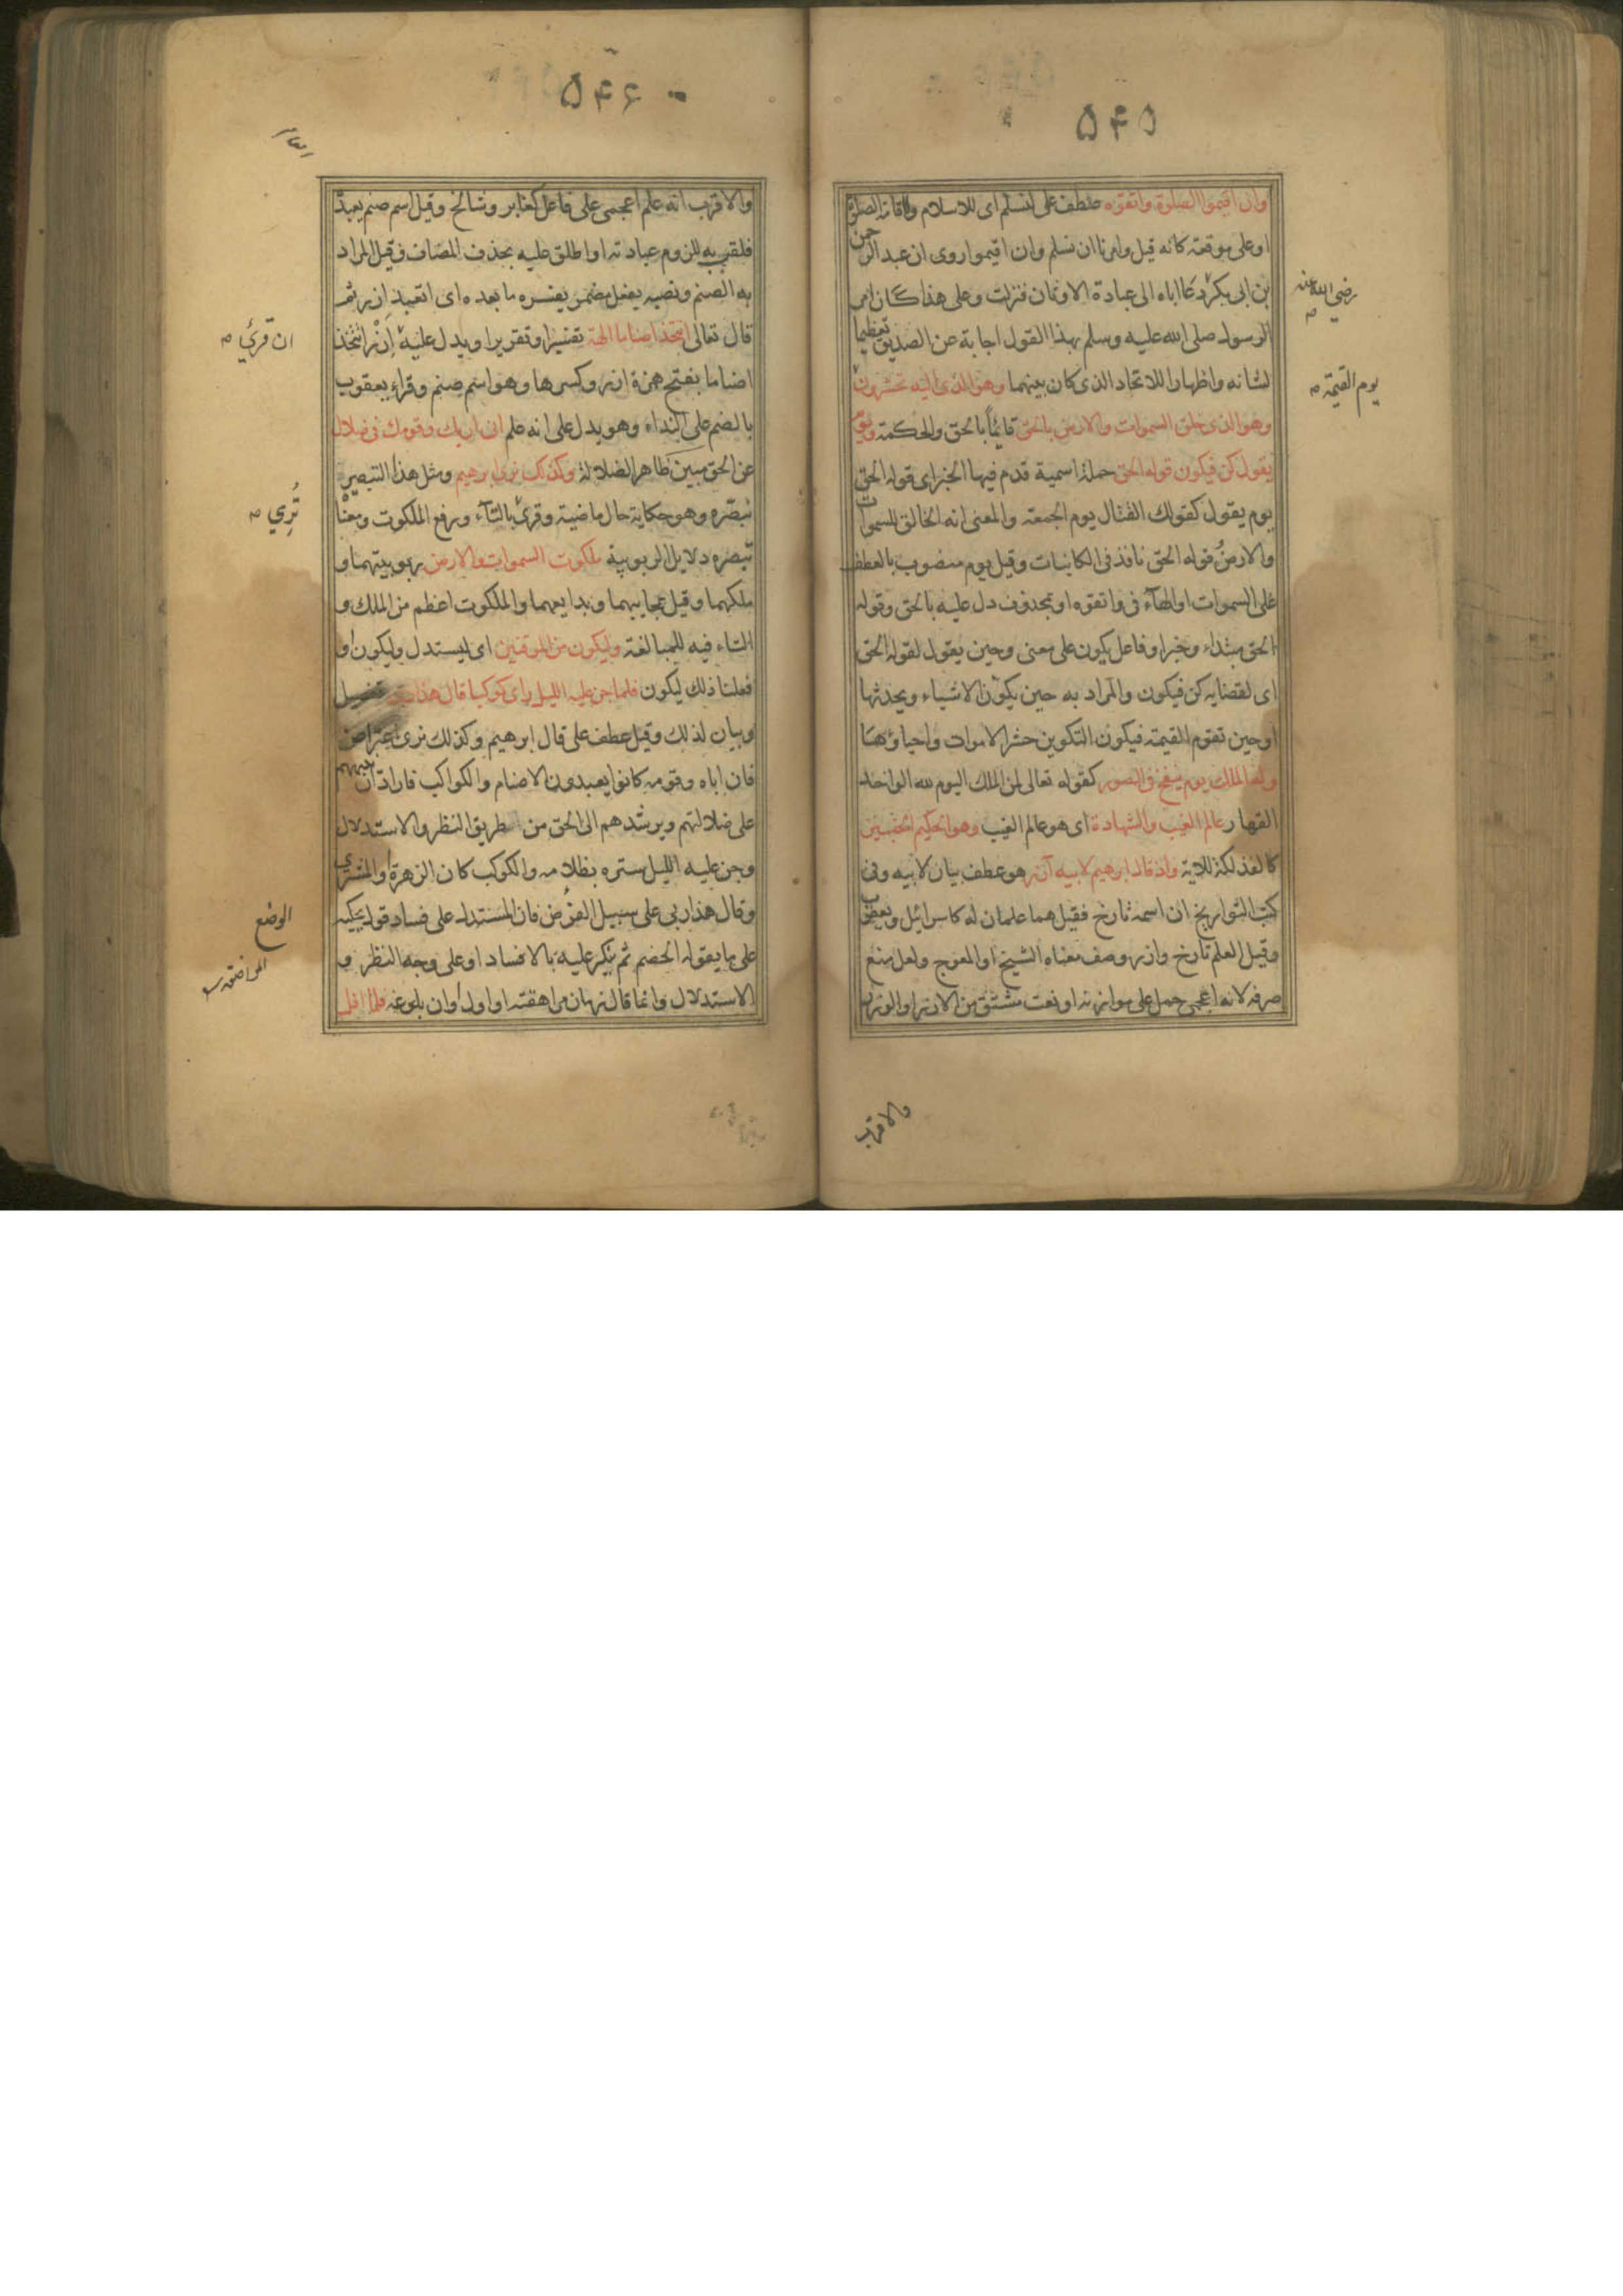 ۵۴۵
وان اقيموا الصلوة واتقوه عطف على لنسلم اى للاسلام ولاقامة الصلوة
او على موقعه كانه قيل وامرنا ان نسلم وان اقيموا روى ان عبد الرحمن
بن ابى بكر دعا اباه الى عبادة الاوثان فنزلت وعلى هذا كان امر
رضي الله عنه
الرسول صلى الله عليه وسلم بهذا القول اجابة عن الصديق تعظيما
لشانه واظهارا للاتحاد الذى كان بينهما وهو الذى اليه تحشرون
يوم القيمة
وهو الذى خلق السموات والارض بالحق قائماً بالحق والحكمة ويوم
يقول كن فيكون قوله الحق جملة اسمية قدم فيها الخبر اى قوله الحق
يوم يقول كقولك القتال يوم الجمعة والمعنى انه الخالق للسموات
والارض قوله الحق نافذ فى الكاينات وقيل يوم منصوب بالعطف
على السموات او الهآء فى واتقوه او بمحذوف دل عليه بالحق وقوله
الحق مبتداء وخبر او فاعل يكون على معنى وحين يقول لقوله الحق
اى لقضايه كن فيكون والمراد به حين يكون الاشياء ويحدثها
او حين تقوم القيمة فيكون التكوين حشر الاموات واحياؤها
وله الملك يوم ينفخ فى الصور كقوله تعالى لمن الملك اليوم لله الواحد
القهار عالم الغيب والشهادة اى هو عالم الغيب وهو الحكيم الخبير
كالفذلكة للاية واذ قال ابرهيم لابيه آزر هو عطف بيان لابيه وفى
كتب التواريخ ان اسمه تارخ فقيل هما علمان له كاسرائيل ويعقوب
وقيل العلم تارخ وازر وصف معناه الشيخ او المعوج ولعل منع
صرفه لانه اعجمى حمل على موازنه او نعت مشتق من الازر او الوزر
والاقرب
۵۴۶
والاقرب انه علم اعجمى على فاعل كعابر وشالخ وقيل اسم صنم يعبده
فلقب به للزوم عبادته او اطلق عليه بحذف المضاف وقيل المراد
به الصنم ونصبه بفعل مضمر يفسره ما بعده اى اتعبد ازر ثم
قال تعالى اتتخذ اصناما الهة تفسيرا وتقريرا ويدل عليه ازرا تتخذ
ان قرئ
اصناما بفتح همزة ازر وكسرها وهو اسم صنم وقراء يعقوب
بالضم على النداء وهو يدل على انه علم انى اراك وقومك فى ضلال
عن الحق مبين ظاهر الضلالة وكذلك نرى ابرهيم ومثل هذا التبصير
نبصّره وهو حكاية حال ماضية وقرئ بالتآء ورفع الملكوت ومعناه
تُرِي
تبصره دلايل الربوبية ملكوت السموات والارض ربوبيتهما و
ملكهما وقيل عجايبهما وبدايعهما والملكوت اعظم من الملك و
التاء فيه للمبالغة وليكون من الموقنين اى ليستدل وليكون او
فعلنا ذلك ليكون فلما جن عليه الليل راى كوكبا قال هذا ربى تفصيل
وبيان لذلك وقيل عطف على قال ابرهيم وكذلك نرى اعتراض
فان اباه وقومه كانوا يعبدون الاصنام والكواكب فاراد ان ينبههم
على ضلالتهم ويرشدهم الى الحق من طريق النظر والاستدلال
وجن عليه الليل ستره بظلامه والكوكب كان الزهرة او المشترى
وقال هذا ربى على سبيل الفرض فان المستدل على فساد قول يحكيه
الوضع
على ما يقوله الخصم ثم يكر عليه بالافساد او على وجه النظر و
الاستدلال وانما قال زمان مراهقته او اول اوان بلوغه فلما افل